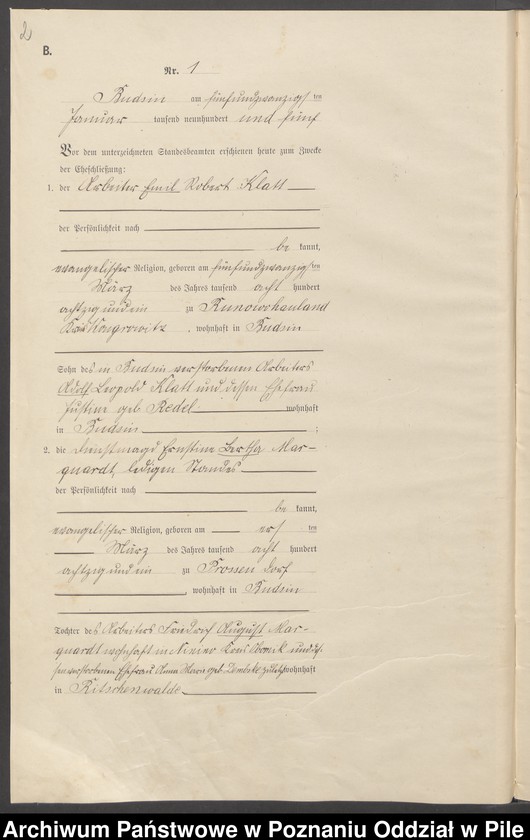 2
B.
Nr. 1
Budsin am fünfundzwanzigs ten
Januar tausend neunhundert und fünf
Vor dem unterzeichneten Standesbeamten erschienen heute zum Zwecke
der Eheschließung:
1. der Arbeiter Emil Robert Klatt
der Persönlichkeit nach
be kannt,
evangelischer Religion, geboren am fünfundzwanzigs ten
März des Jahres tausend acht hundert
achtzig und ein zu Runowohauland
Kreis Wongrowitz, wohnhaft in Budsin
Sohn des in Budsin verstorbenen Arbeiters
Adolf Leopold Klatt und dessen Ehefrau
Justine geb. Redel wohnhaft
in Budsin ;
2. die Dienstmagd Ernstine Bertha Mar-
quardt, ledigen Standes
der Persönlichkeit nach
be kannt,
evangelischer Religion, geboren am ers ten
März des Jahres tausend acht hundert
achtzig und ein zu Prossen Dorf
, wohnhaft in Budsin
Tochter des Arbeiters Friedrich August Mar-
quardt wohnhaft in Kreis Obornik und des-
sen verstorbenen Ehefrau Anna Marie geb. zuletzt wohnhaft
in Ritschenwalde
Archiwum Państwowe w Poznaniu Oddział w Pile